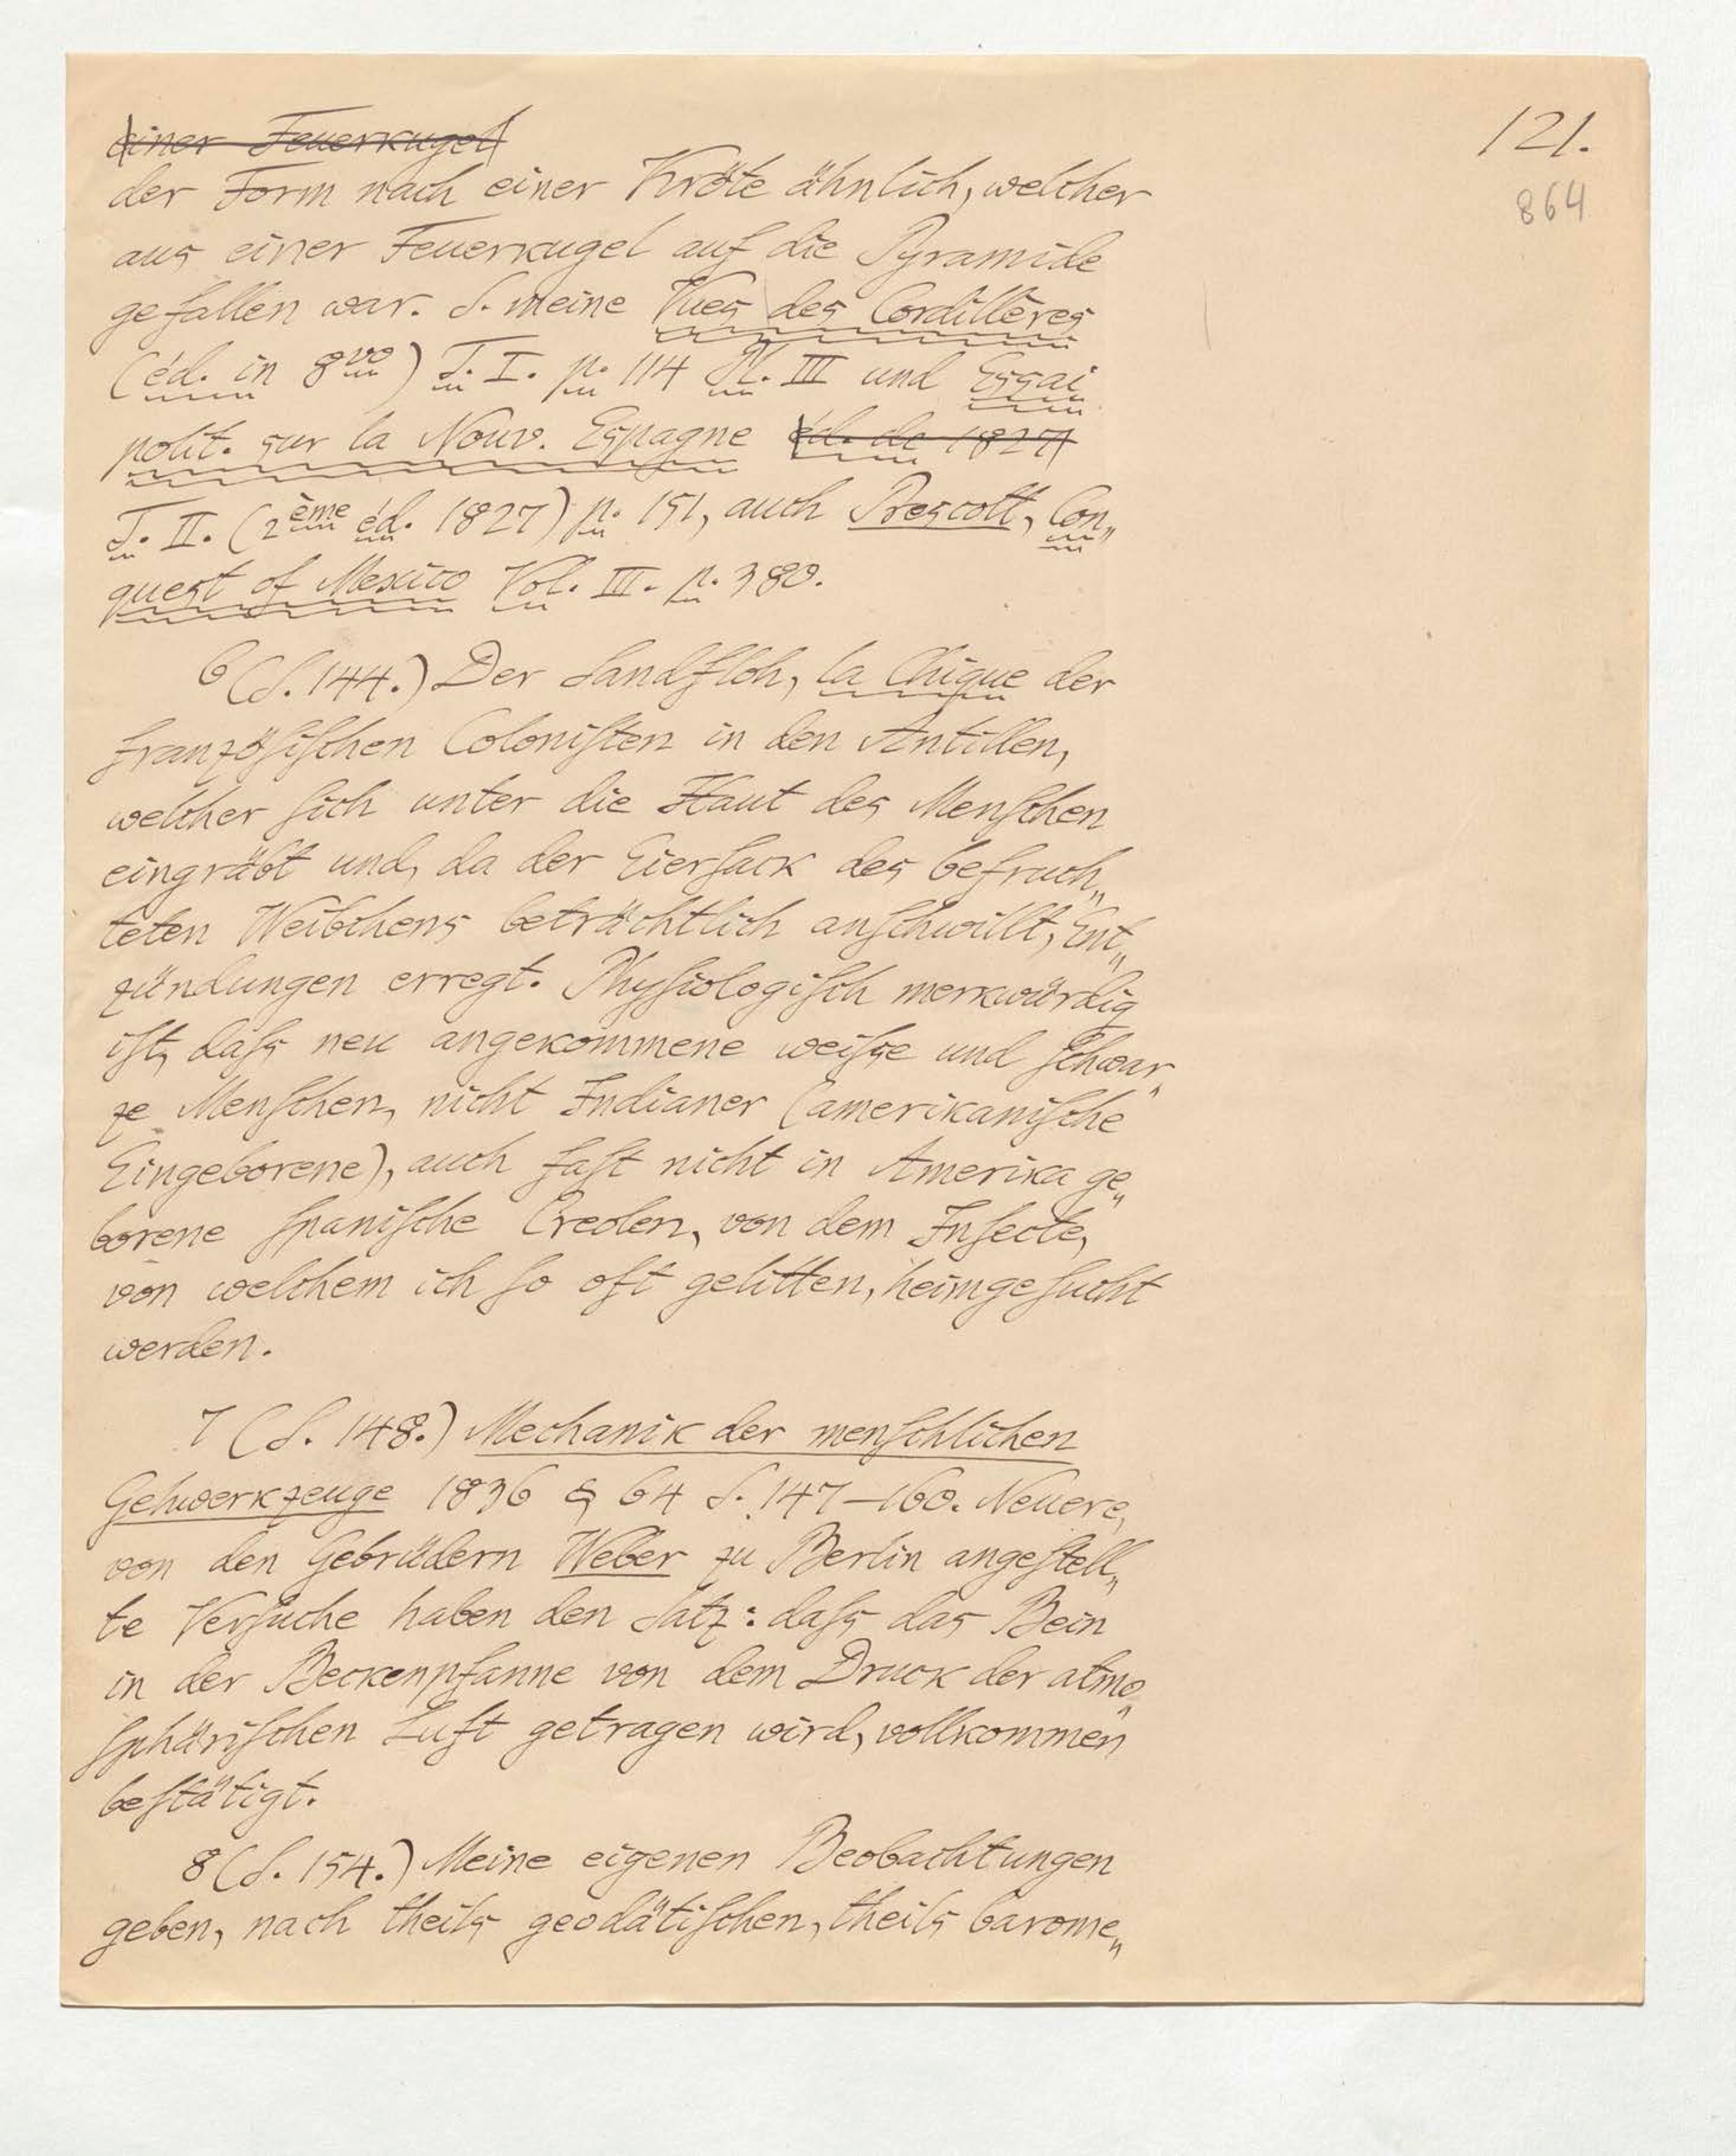 121.
864
einer Feuerkugel
der Form nach einer Kröte ähnlich, welcher
aus einer Feuerkugel auf die Pyramide
gefallen war. S. meine Vues des Cordillères
(éd. in 8vo) T. I. p. 114 Pl. III und Essai
polit. sur la Nouv. Espagne éd. de 1827
T. II. (2ème éd. 1827) p. 151, auch Prescott, Con„
quest of Mexico Vol. III. p. 380.
6 (S. 144.) Der Sandfloh, la Chique der
franzöſiſchen Coloniſten in den Antillen,
welcher ſich unter die Haut des Menſchen
eingräbt und, da der Eierſack des befruch„
teten Weibchens beträchtlich anſchwillt, Ent„
zündungen erregt. Phyſiologiſch merkwürdig
iſt, daſs neu angekommene weiſse und ſchwar„
ze Menſchen, nicht Indianer (amerikaniſche
Eingeborene), auch faſt nicht in Amerika ge„
borene ſpaniſche Creolen, von dem Inſecte,
von welchem ich ſo oft gelitten, heimgeſucht
werden.
7 (S. 148.) Mechanik der menſchlichen
Gehwerkzeuge 1836 § 64 S. 147–160. Neuere,
von den Gebrüdern Weber zu Berlin angeſtell„
te Verſuche haben den Satz: daſs das Bein
in der Beckenpfanne von dem Druck der atmo„
ſphäriſchen Luft getragen wird, vollkommen
beſtätigt.
8 (S. 154.) Meine eigenen Beobachtungen
geben, nach theils geodätiſchen, theils barome„